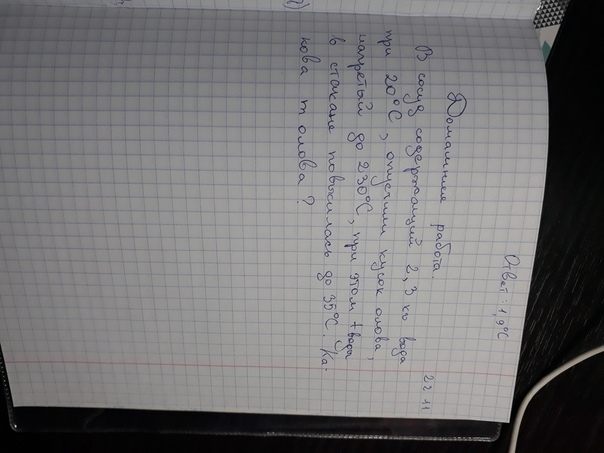 Ответ 1,9°C
22 11
Домашняя работа.
В сосуд содержащий 2,3 кг вода
при 20°C, опустили кусок олова,
нагретый до 230°C, при этом t воды
в стакане повысилась до 35°C. Ка-
кова m олова?